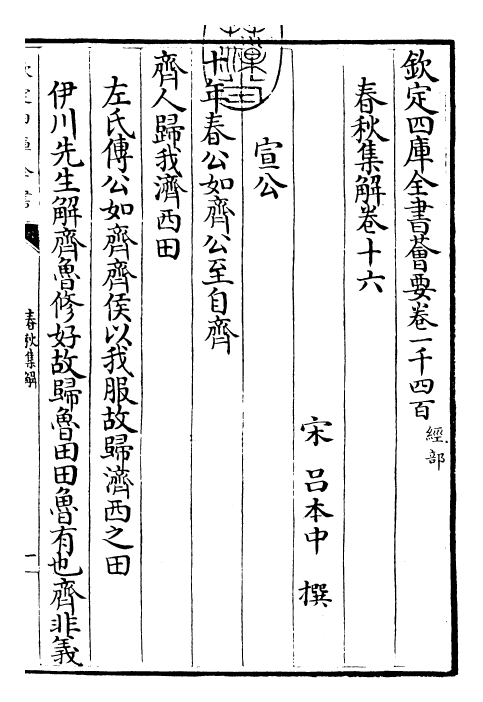 欽定四庫全書薈要卷一千四百 經部
春秋集解卷十六
宋 呂本中 撰
宣公
十年春公如齊公至自齊
齊人歸我濟西田
左氏傳公如齊齊侯以我服故歸濟西之田
伊川先生解齊魯修好故歸魯田田魯有也齊非義
春秋集解
一